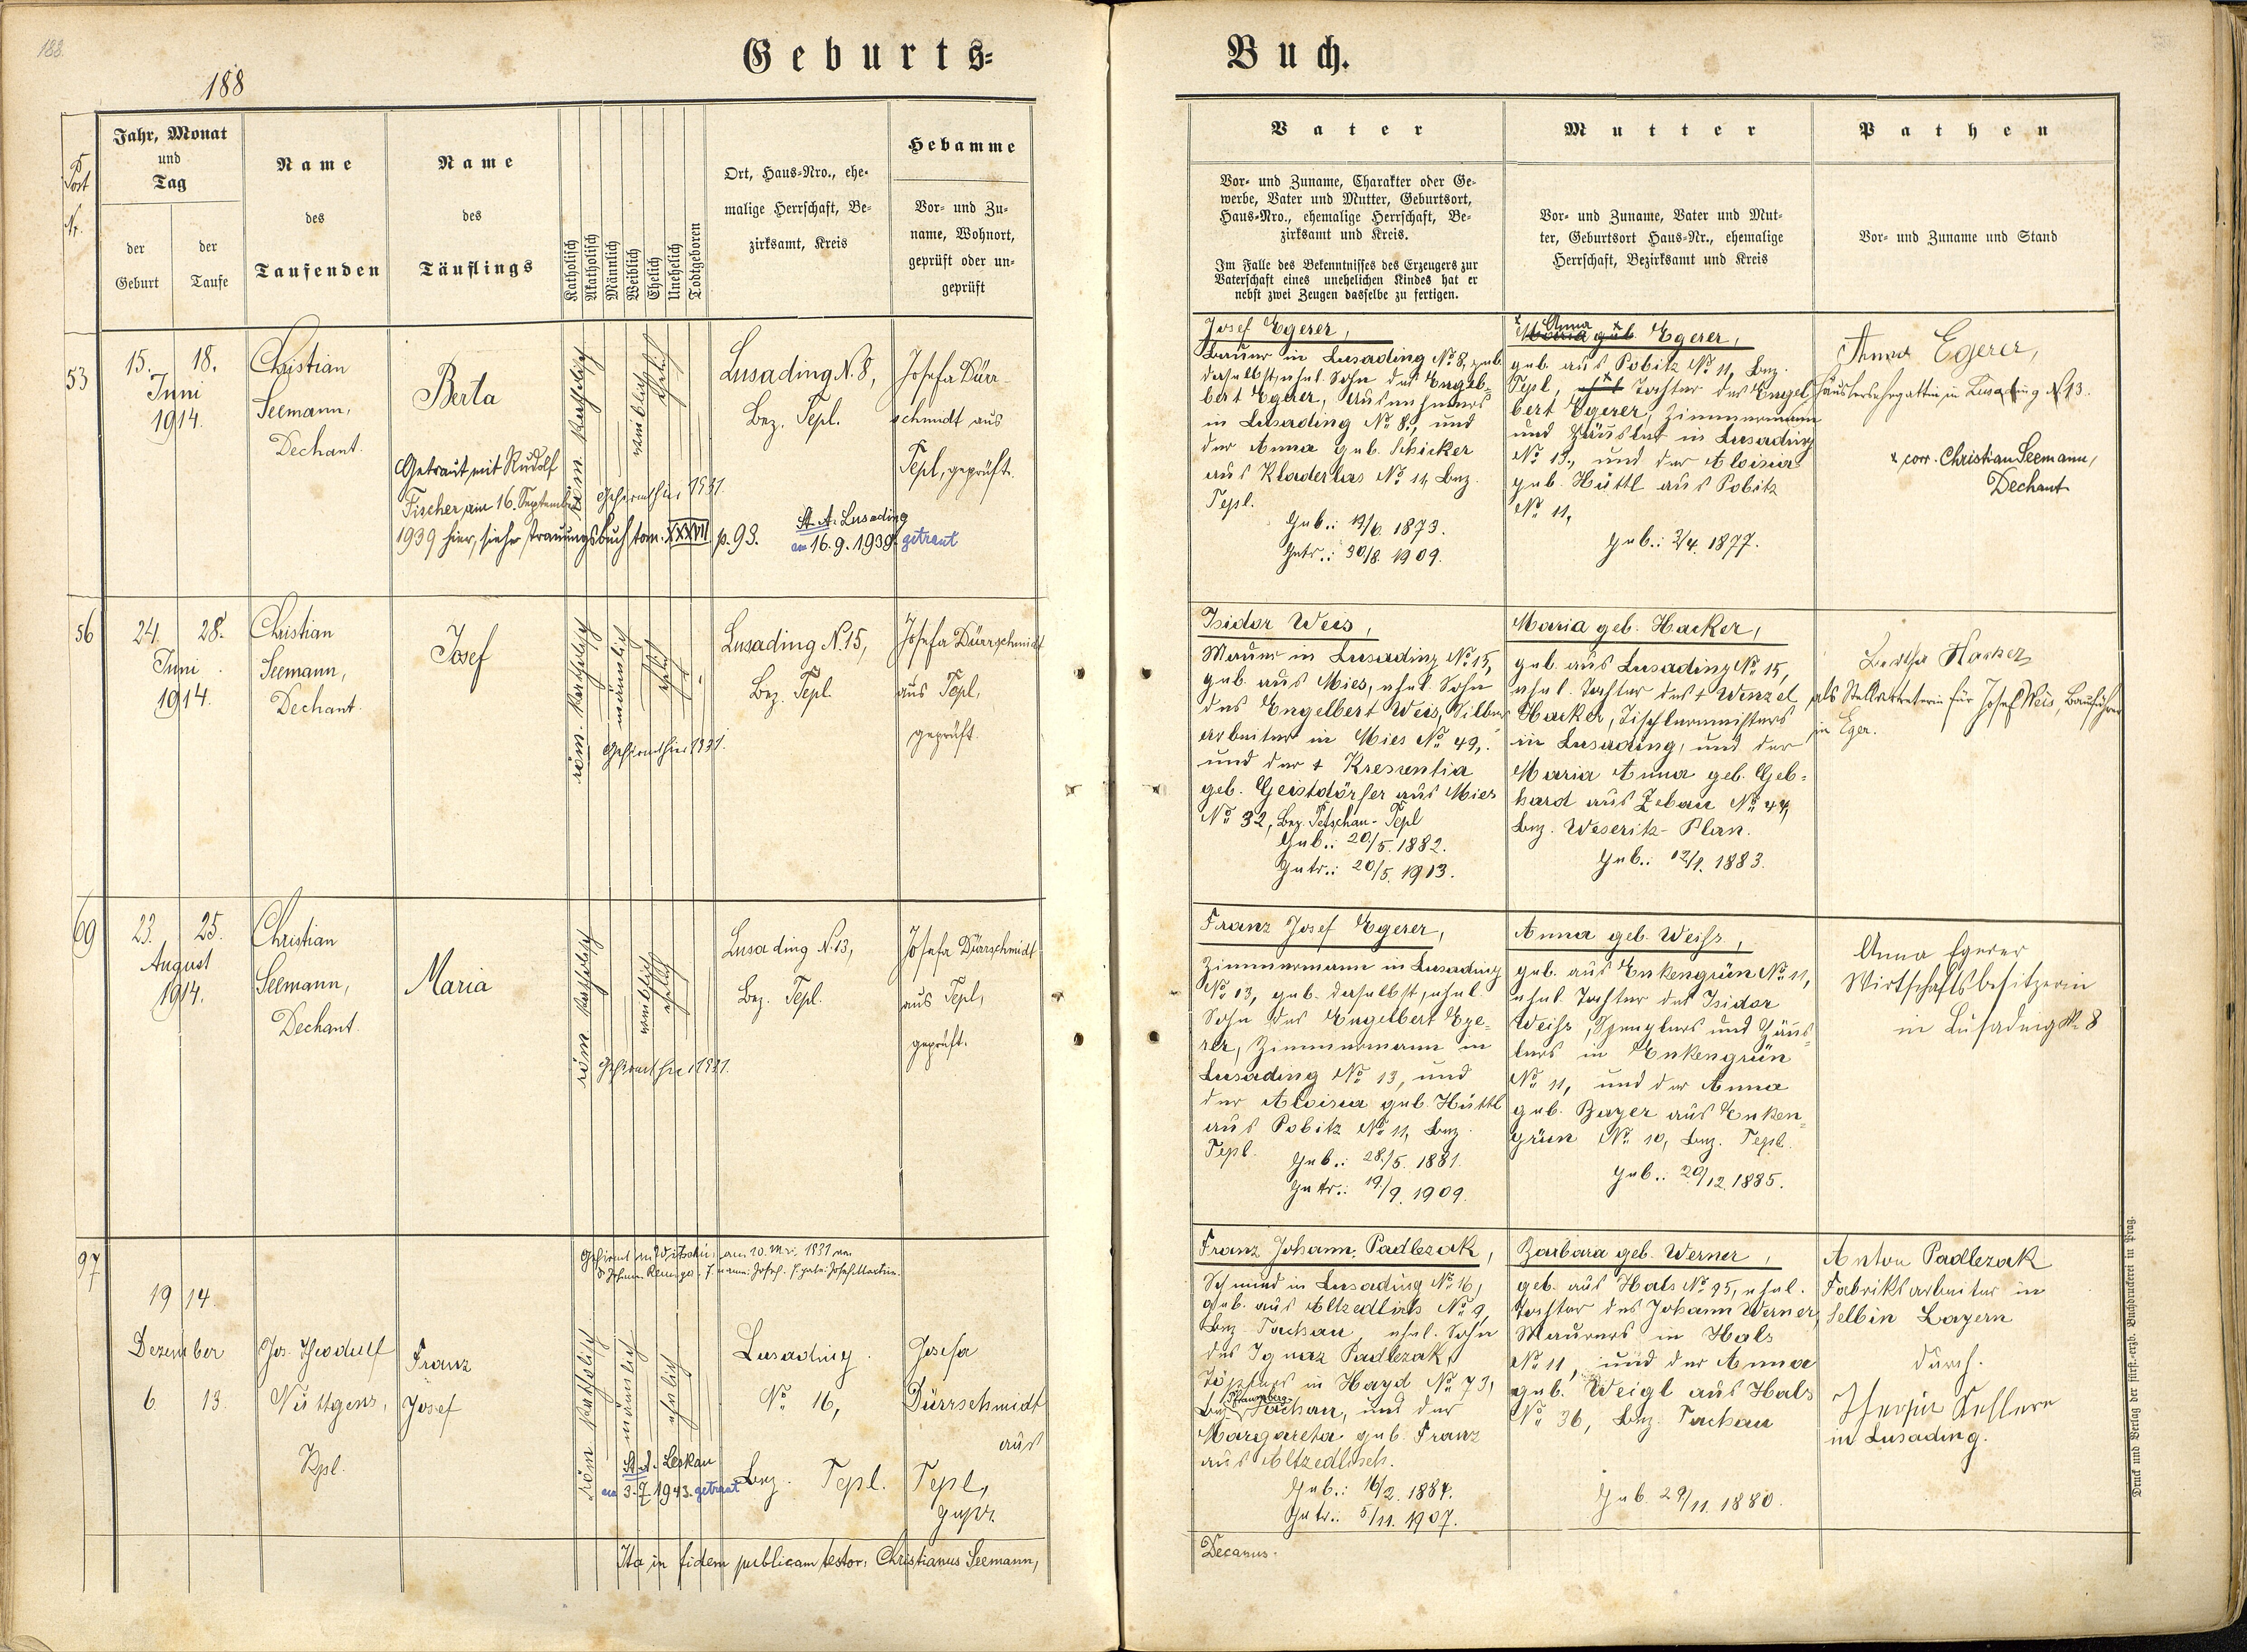 188.
188
Geburts=
Buch.
Post
Nr.
Jahr, Monat
und
Tag
der
Geburt
der
Taufe
Name
des
Taufenden
Name
des
Täuflings
Katholisch
Akatholisch
Männlich
Weiblich
Ehelich
Unehelich
Todtgeboren
Ort, Haus=Nro., ehe=
malige Herrschaft, Be=
zirksamt, Kreis
Hebamme
Vor= und Zu=
name, Wohnort,
geprüft oder un=
geprüft
Vater
Vor= und Zuname, Charakter oder Ge=
werbe, Vater und Mutter, Geburtsort,
Haus=Nro., ehemalige Herrschaft, Be=
zirksamt und Kreis.
Im Falle des Bekenntnisses des Erzeugers zur
Vaterschaft eines unehelichen Kindes hat er
nebst zwei Zeugen dasselbe zu fertigen.
Mutter
Vor= und Zuname, Vater und Mut=
ter, Geburtsort Haus=Nr., ehemalige
Herrschaft, Bezirksamt und Kreis
Pathen
Vor= und Zuname und Stand
53
15. 18.
Juni
1914.
Christian
Seemann,
Dechant.
Berta
Getraut mit Rudolf
Fischer, am 16. September
1939 hier, siehe Trauungsbuch tom. XXXVII p. 93.
röm. katholisch
weiblich
ehelich
Gefirmt hier 1931.
Lusading N. 8,
Bez. Tepl.
St. A. Lusading
am 16. 9. 1939 getraut
Josefa Dürr=
schmidt aus
Tepl, geprüft.
Josef Egerer,
Bauer in Lusading No 8, geb.
daselbst, ehel. Sohn des Engel=
bert Egerer, Ausnehmers
in Lusading No 8., und
der Anna geb. Schicker
aus Kladerlas No 11, Bez.
Tepl.
Geb.: 19/6. 1873.
Getr.: 30/8. 1909.
x Anna x
Maria geb. Egerer,
geb. aus Pobitz No 11, Bez.
Tepl, ehel. Tochter des Engel=
bert Egerer, Zimmermann
und Häusler in Lusading
No 13., und der Aloisia
geb. Hüttl aus Pobitz
No 11,
Geb.: 3/4. 1877.
Anna Egerer,
Häuslersgattin in Lusading No 13.
x corr. Christian Seemann,
Dechant
56
24. 28.
Juni
1914.
Christian
Seemann,
Dechant.
Josef
röm. katholisch
männlich
ehelich
Gefirmt hier 1931.
Lusading N. 15,
Bez. Tepl.
Josefa Dürrschmidt
aus Tepl,
geprüft.
Isidor Weis,
Maurer in Lusading No 15,
geb. aus Mies, ehel. Sohn
des Engelbert Weis, Silber=
arbeiter in Mies No 49,
und der † Kresentia
geb. Geistdörfer aus Mies
No 32, Bez. Petschau-Tepl
Geb.: 20/5. 1882.
Getr.: 20/5. 1913.
Maria geb. Hacker,
geb. aus Lusading No 15,
ehel. Tochter des † Wenzel
Hacker, Tischlermeisters
in Lusading, und der
Maria Anna geb. Geb=
hard aus Zebau No 44,
Bez. Weseritz-Plan.
Geb.: 12/1. 1883.
Bertha Hacker
als Stellvertreterin für Josef Weis, Bauführer
in Eger.
69
23. 25.
August
1914.
Christian
Seemann,
Dechant
Maria
röm. katholisch
weiblich
ehelich
Gefirmt hier 1931.
Lusading N. 13,
Bez. Tepl.
Josefa Dürrschmidt
aus Tepl,
geprüft.
Franz Josef Egerer,
Zimmermann in Lusading
No 13, geb. daselbst, ehel.
Sohn des Engelbert Ege=
rer, Zimmermann in
Lusading No 13, und
der Aloisia geb. Hüttl
aus Pobitz No 11, Bez.
Tepl.
Geb.: 28/5. 1881.
Getr.: 19/9. 1909.
Anna geb. Weiss,
geb. aus Enkengrün No 11,
ehel. Tochter des Isidor
Weiss, Spenglers und Häus=
lers in Enkengrün
No 11, und der Anna
geb. Bayer aus Enken=
grün No 10, Bez. Tepl.
Geb.: 29/12. 1885.
Anna Egerer
Wirtschaftsbesitzerin
in Lusading No 8
97
1914.
Dezember
6. 13.
Jos. Theodulf
Nüttgens,
Kpl.
Franz
Josef
röm. katholisch
männlich
ehelich
St. A. Leskau
am 3. 7. 1943. getraut
Lusading
No 16,
Bez. Tepl.
Josefa
Dürrschmidt
aus
Tepl,
gepr.
Franz Johann Padlezak,
Schmied in Lusading No 16,
geb. aus Altzedlisch No 9,
Bez. Tachau, ehel. Sohn
des Ignaz Padlezak,
Töpfers in Hayd No 73,
Pfraumberg
Bez. Tachau, und der
Margareta geb. Franz
aus Altzedlisch.
Geb.: 16/2. 1884.
Getr.: 5/11. 1907.
Barbara geb. Werner,
geb. aus Hals No 95, ehel.
Tochter des Johann Werner,
Maurers in Hals
No 11, und der Anna
geb. Weigl aus Hals
No 36, Bez. Tachau
Geb. 29/11. 1880.
Anton Padlezak
Fabriksarbeiter in
Selb in Bayern
durch.
in Lusading.
Ita in fidem publicam testor: Christianus Seemann,
Decanus.
Druck und Verlag der fürst.=erzb. Buchdruckerei in Prag.